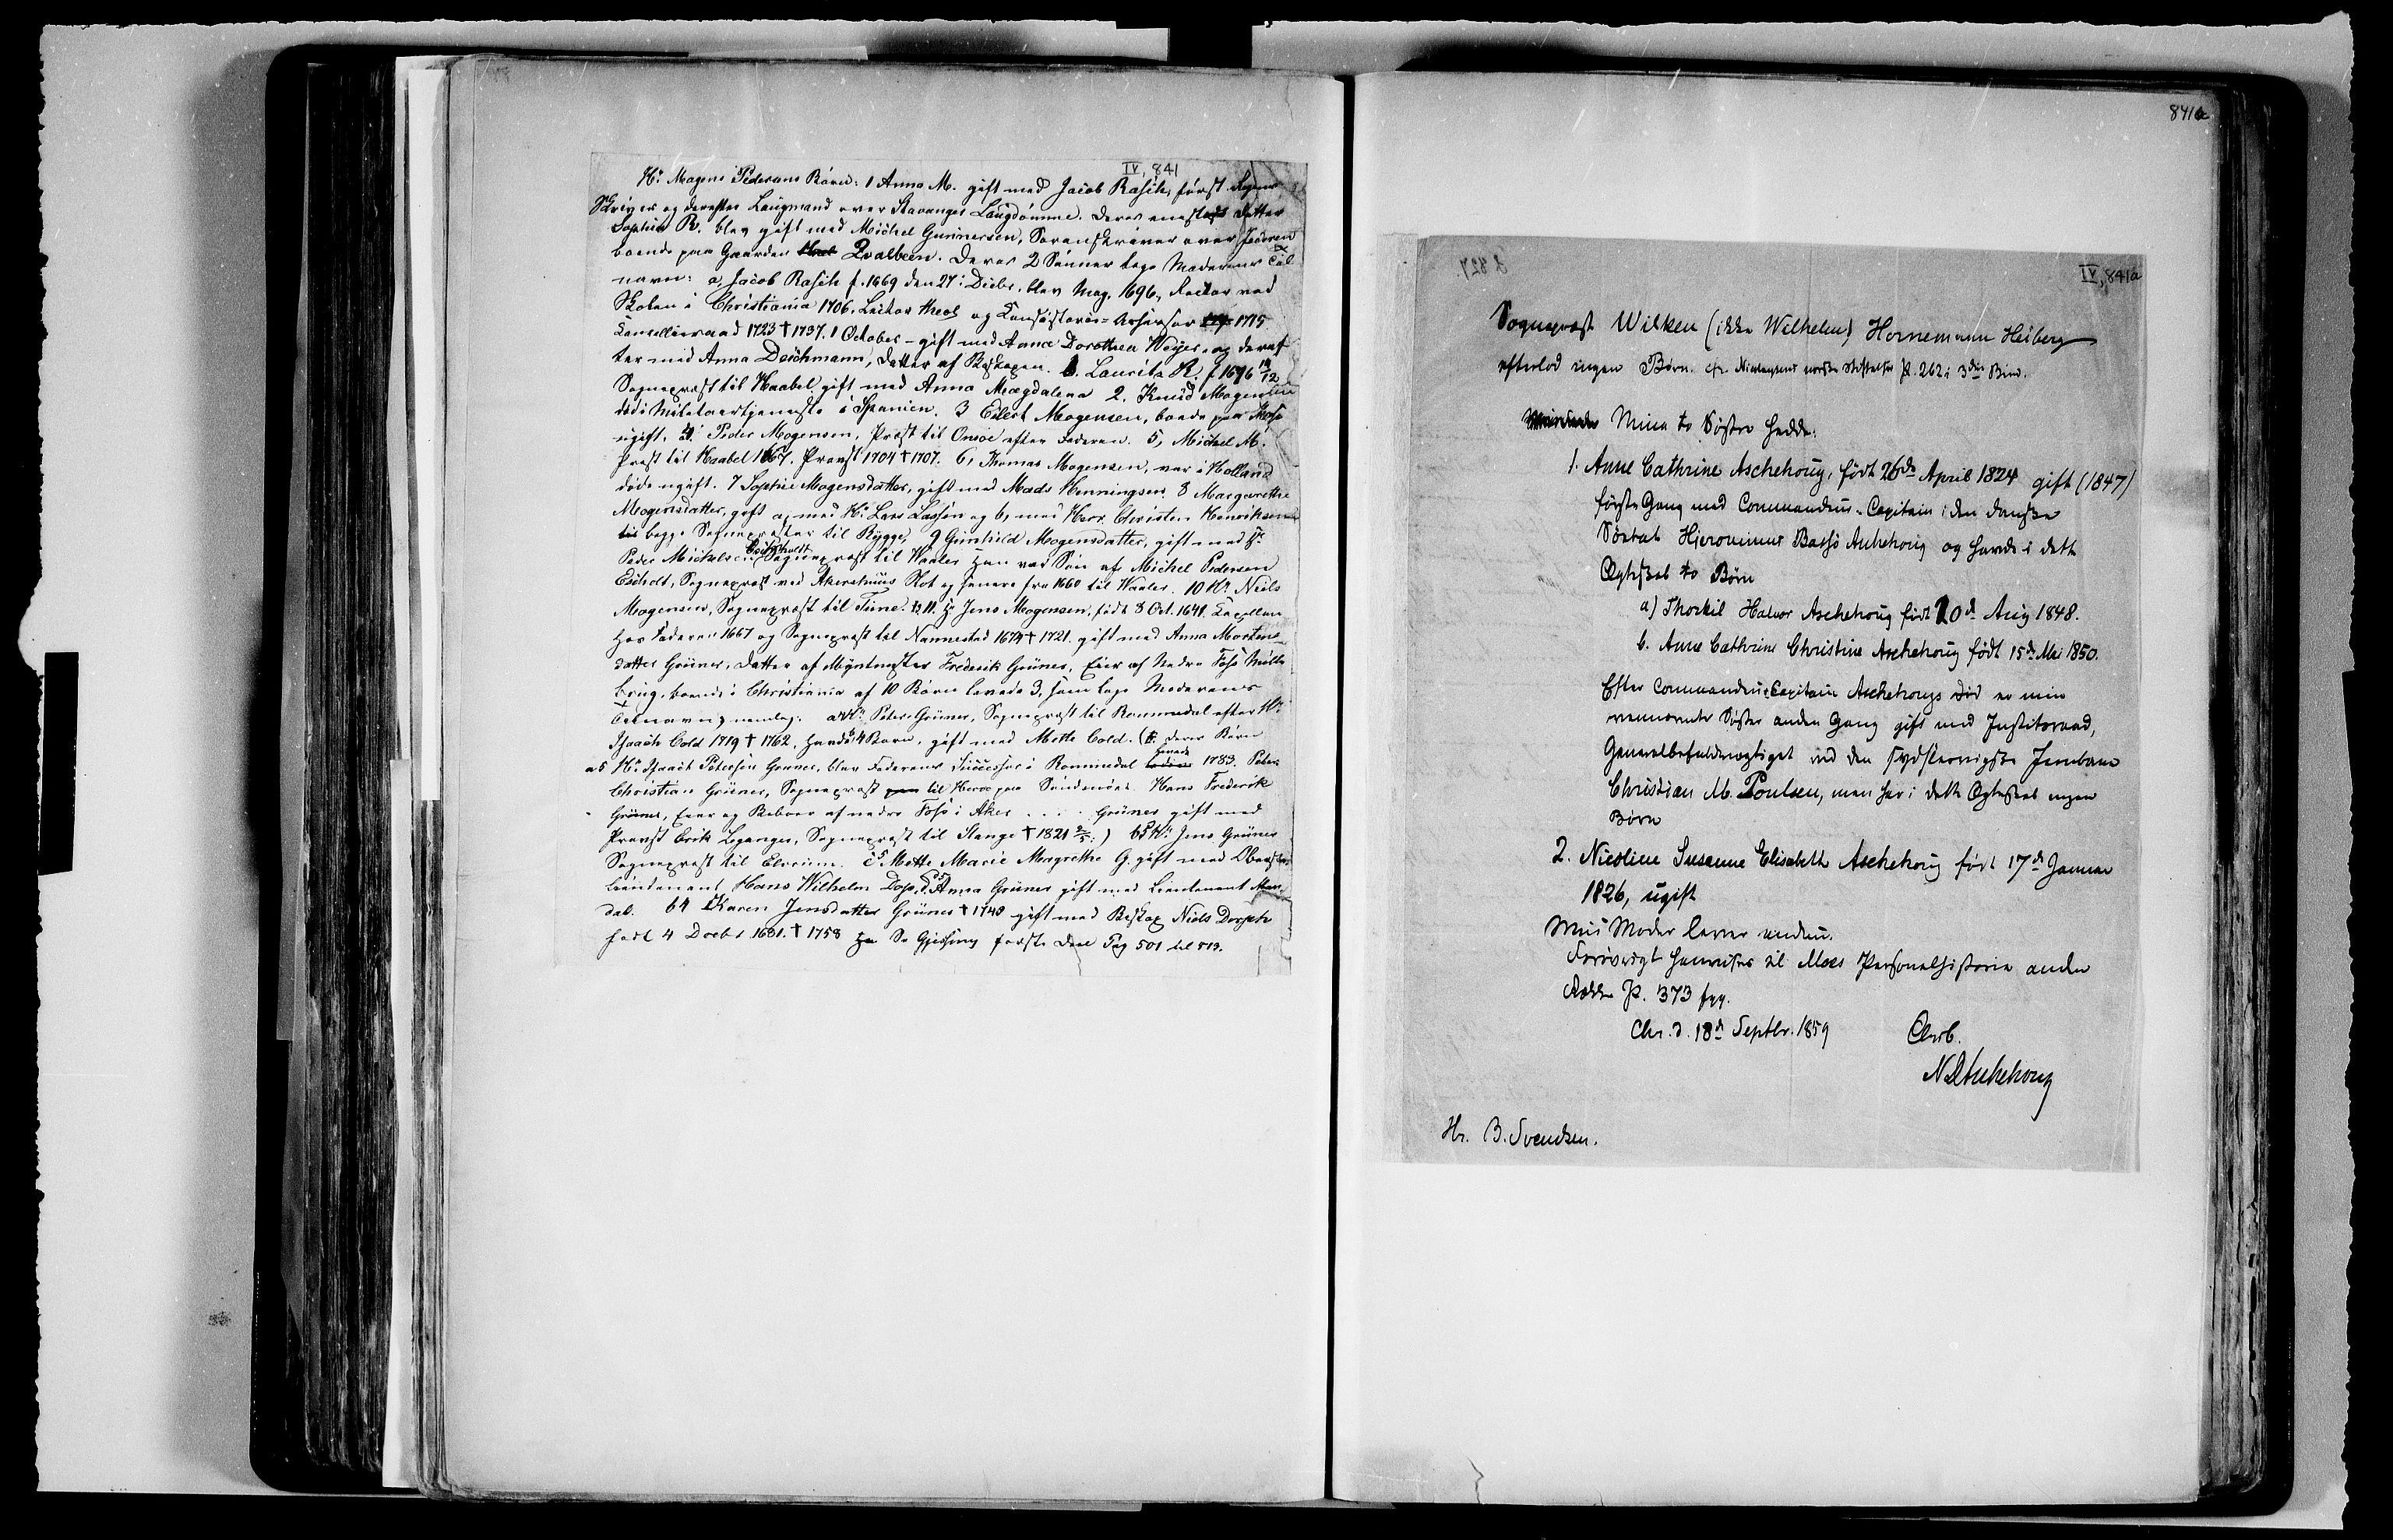 IV, 841
Hr Mogens Pedersens Børn: 1 Anna M. gift med Jacob Rasch, først
Skriver og derefter Laugmand over Stavanger Laugdømme. Deres eneste Datter
Sophia R. blev gift med Michel Gunnersen, Sorenskriver over Jederen
boende paa Gaarden Qvalbeen. Deres 2 Sønner tage Moderens Til
navn: a, Jacob Rasch f. 1669 den 27: Decbr. blev Mag. 1696, Rector ved
Skolen i Christiania 1706. Lector theol og Consistorial-Assessor 1715
Cancelliraad 1723 † 1737. 1 October - gift med Anna Dorothea og deref
ter med Anna Deichmann, Datter af Biskopen. b. Lauritz R. f 1676
Sogneprest til Haabel gift med Anna Magdalena 2. Knud Mogensen
død i Militairtjeneste i Spanien. 3 Eilert Mogensen, boede paa
ugift. 4. Peder Mogensen, Præst til Onsøe efter Faderen. 5, Michel M.
Præst til Haabel 1667. Provst 1704 † 1707. 6, Thomas Mogensen, var i Holland
døde ugift. 7 Sophie Mogensdatter, gift med Mads Henningsen 8 Margarethe
Mogensdatter, gift a, med Hr Lars Lassen og b, med Herr Christen Henriksen
begge Sognepræster til Rygge, 9 Gunhild Mogensdatter, gift med Hr
Peder Michelsen Escholt Sognepræst til Waaler han var Søn af Michel Pedersen
Escholt, Sognepræst ved Akershuus Slot og senere fra 1660 til Waaler. 10 Hr Niels
Mogensen, Sognepræst til Tune. 11. Hr Jens Mogensen, født 8 Oct. 1641. Capellan
hos Faderen 1667 og Sognepræst til Nannestad 1674 † 1721. gift med Anna Mortens
datter Grüner, Datter af Myntmester Frederik Grüner, Eier af Nedre Foss Mølle
brug, boende i Christiania af 10 Børn levede 3, som tage Moderens
Tilnavn, nemlig: a Hr Peter Grüner, Sognepræst til Rommedal efter Hr
Isaach Cold 1719 † 1762, havde 4 Børn, gift med Mette Cold. ( deres Børn
a5 Hr Isaach Petersen Grüner, blev Faderens Successor i Rommedal levede 1783. Peter
Christian Grüner, Sognepræst til Herøe paa Søndmøer. Hans Frederik
Grüner, Eier og Beboer af nedre Foss i Aker . . . . Grüner gift med
Provst Erik Leganger, Sognepræst til Stange † 1821 2/5.) b5 Hr Jens Grüner
Sognepræst til Elverum. c5 Mette Marie Magrethe G. gift med Oberst
lieutenant Hans Wilhelm Dop, d5 Anna Grüner gift med Lieutenant
dal. b4 Karen Jensdatter Grüner † 1749 gift med Biskop Niels Dorph
født 4 Decbr 1681. † 1758 Se Gjessing første Deel Pag 501 til 513.
841a
IV, 841a
Sognepræst Wilken (ikke Wilhelm) Hornemann Heiberg
efterlod ingen Børn. cfr. norske Stiftelser P. 262 i 3die Bind.
Mine to Søstre hedde:
1. Anne Cathrine Aschehoug, født 26de April 1824 gift (1847)
første Gang med Commandeur-Capitain i den danske
Søetat Hjeronimus Bassø Aschehoug og havde i dette
Ægteskab to Børn
a) Thorkil Halvor Aschehoug født 10de Aug 1848.
b. Anne Cathrine Christine Aschehoug født 15de Mai 1850.
Efter Commandeur-Capitain Aschehougs Død er min
nævnte Søster anden Gang gift med Justitsraad,
Generalbefuldmægtiget ved den sydslesvigske Jernbane
Christian M. Poulsen, men har i dette Ægteskab ingen
Børn
2. Nicoline Susanne Elisabeth Aschehoug født 17de Januar
1826, ugift
Min Moder lever endnu.
Forøvrigt henvises til Moes Personalhistorie anden
Række P. 373 fgg.
Chr. d. 18de Septbr. 1859
Ærb.
N D Aschehoug
Hr. B. Svendsen.